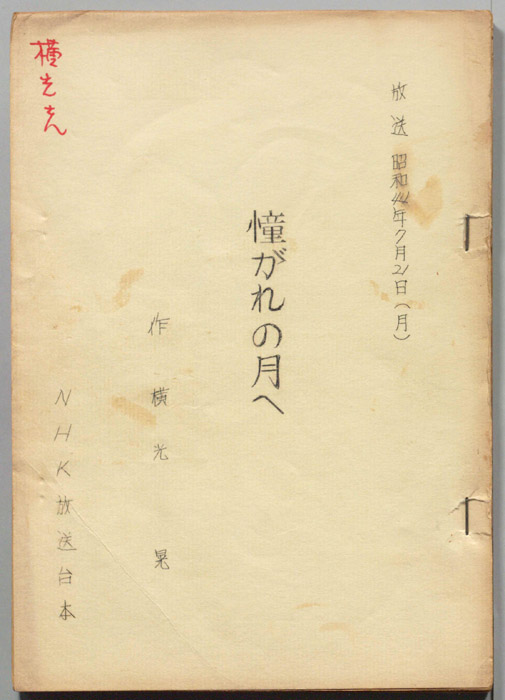 放送 昭和44年7月21日(月)
憧がれの月へ
作 横光 晃
NHK放送台本